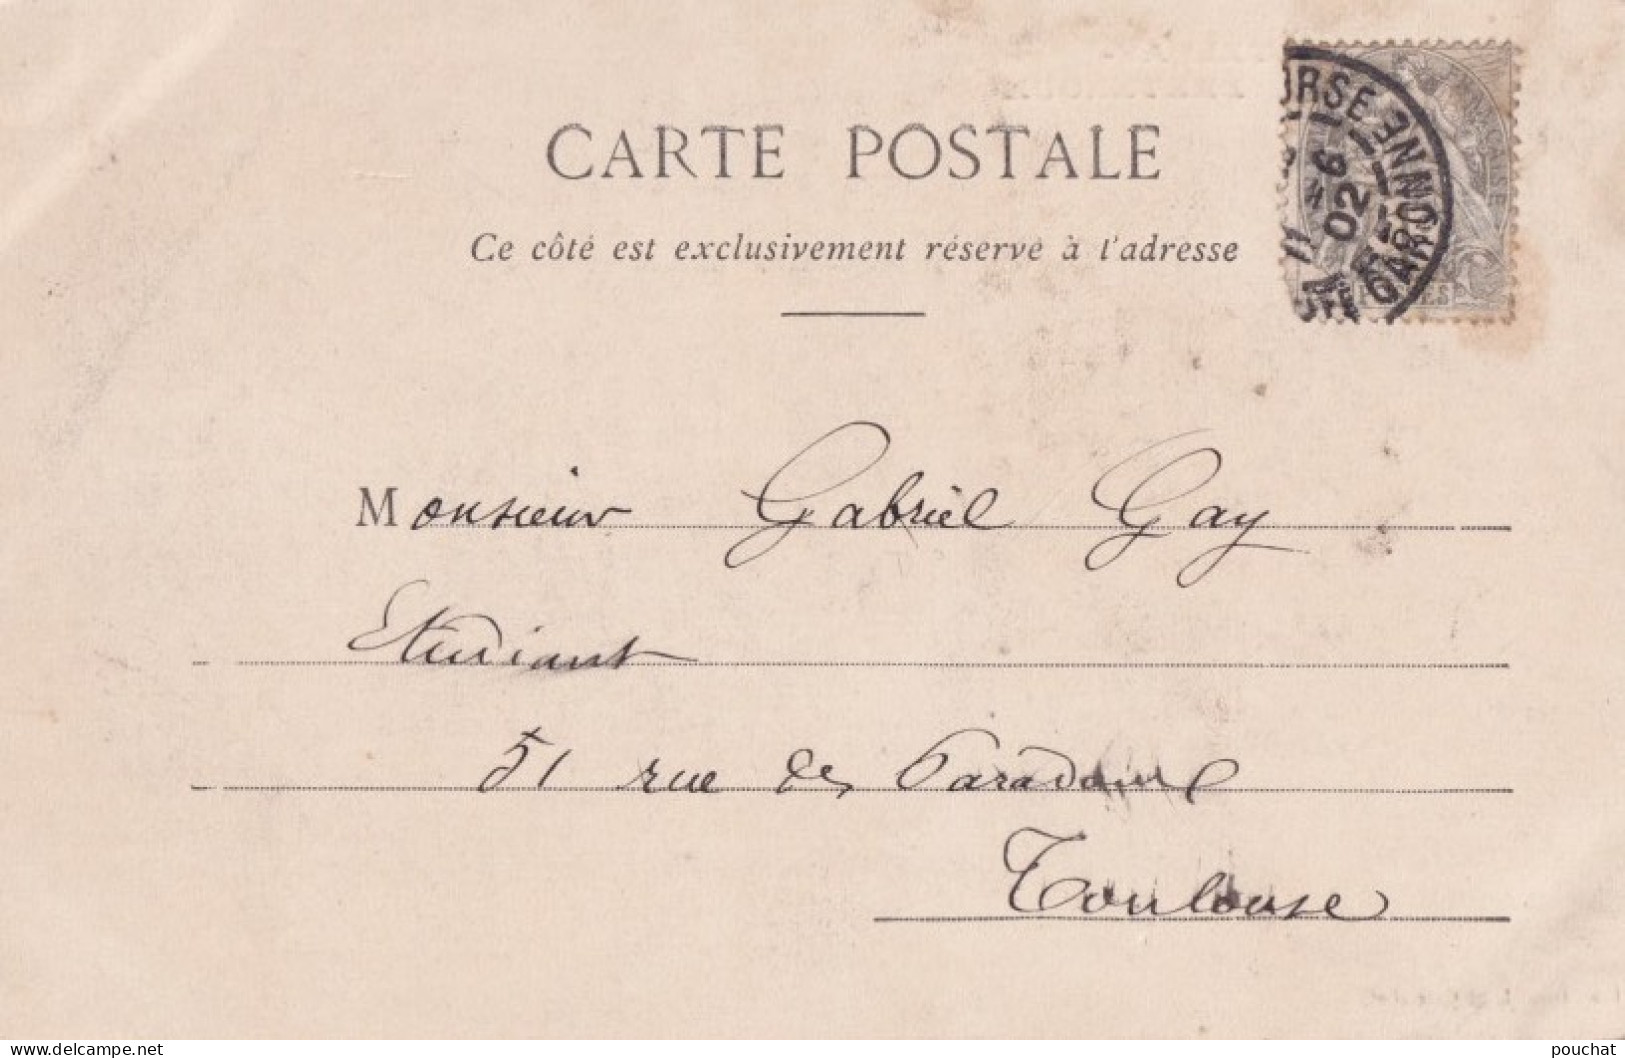 CARTE POSTALE
Ce côté est exclusivement réservé à l'adresse
Monsieur Gabriel Gay
Etudiant
51 rue des Paradoux
Toulouse
02
GARONNE
pouchat